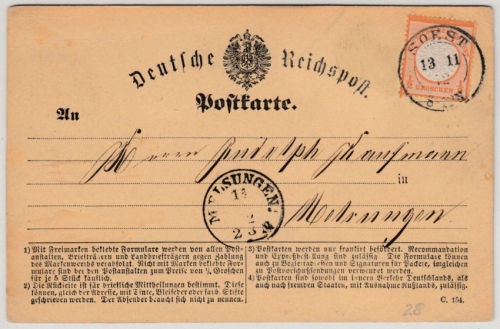 Deutsche Reichspost.
Postkarte.
SOEST
13 11
½
GROSCHEN
An
Herrn Rudolph Kaufmann
in
Melsungen.
MELSUNGEN
1) Mit Freimarken beklebte Formulare werden von allen Post-
anstalten, Briefträgern und Landbriefträgern gegen Zahlung
des Markenwerths verabfolgt. Nicht mit Marken beklebte For-
mulare sind bei den Postanstalten zum Preise von ¼ Groschen
für je 5 Stück käuflich.
2) Die Rückseite ist für briefliche Mittheilungen bestimmt. Diese
können, gleich der Adresse, mit Tinte, Bleifeder oder farb. Stifte
geschrieben werden. Der Absender braucht sich nicht zu nennen.
3) Postkarten werden nur frankirt befördert. Recommandation
und Expreßbestellung sind zulässig. Die Formulare können
auch zu Bestellkarten und Signaturen für Packete, imgleichen
zu Postvorschußsendungen verwendet werden.
4) Postkarten sind sowohl im inneren Verkehr Deutschlands, als
auch nach fremden Staaten, mit Ausnahme Rußlands, zulässig.
C. 154.
28